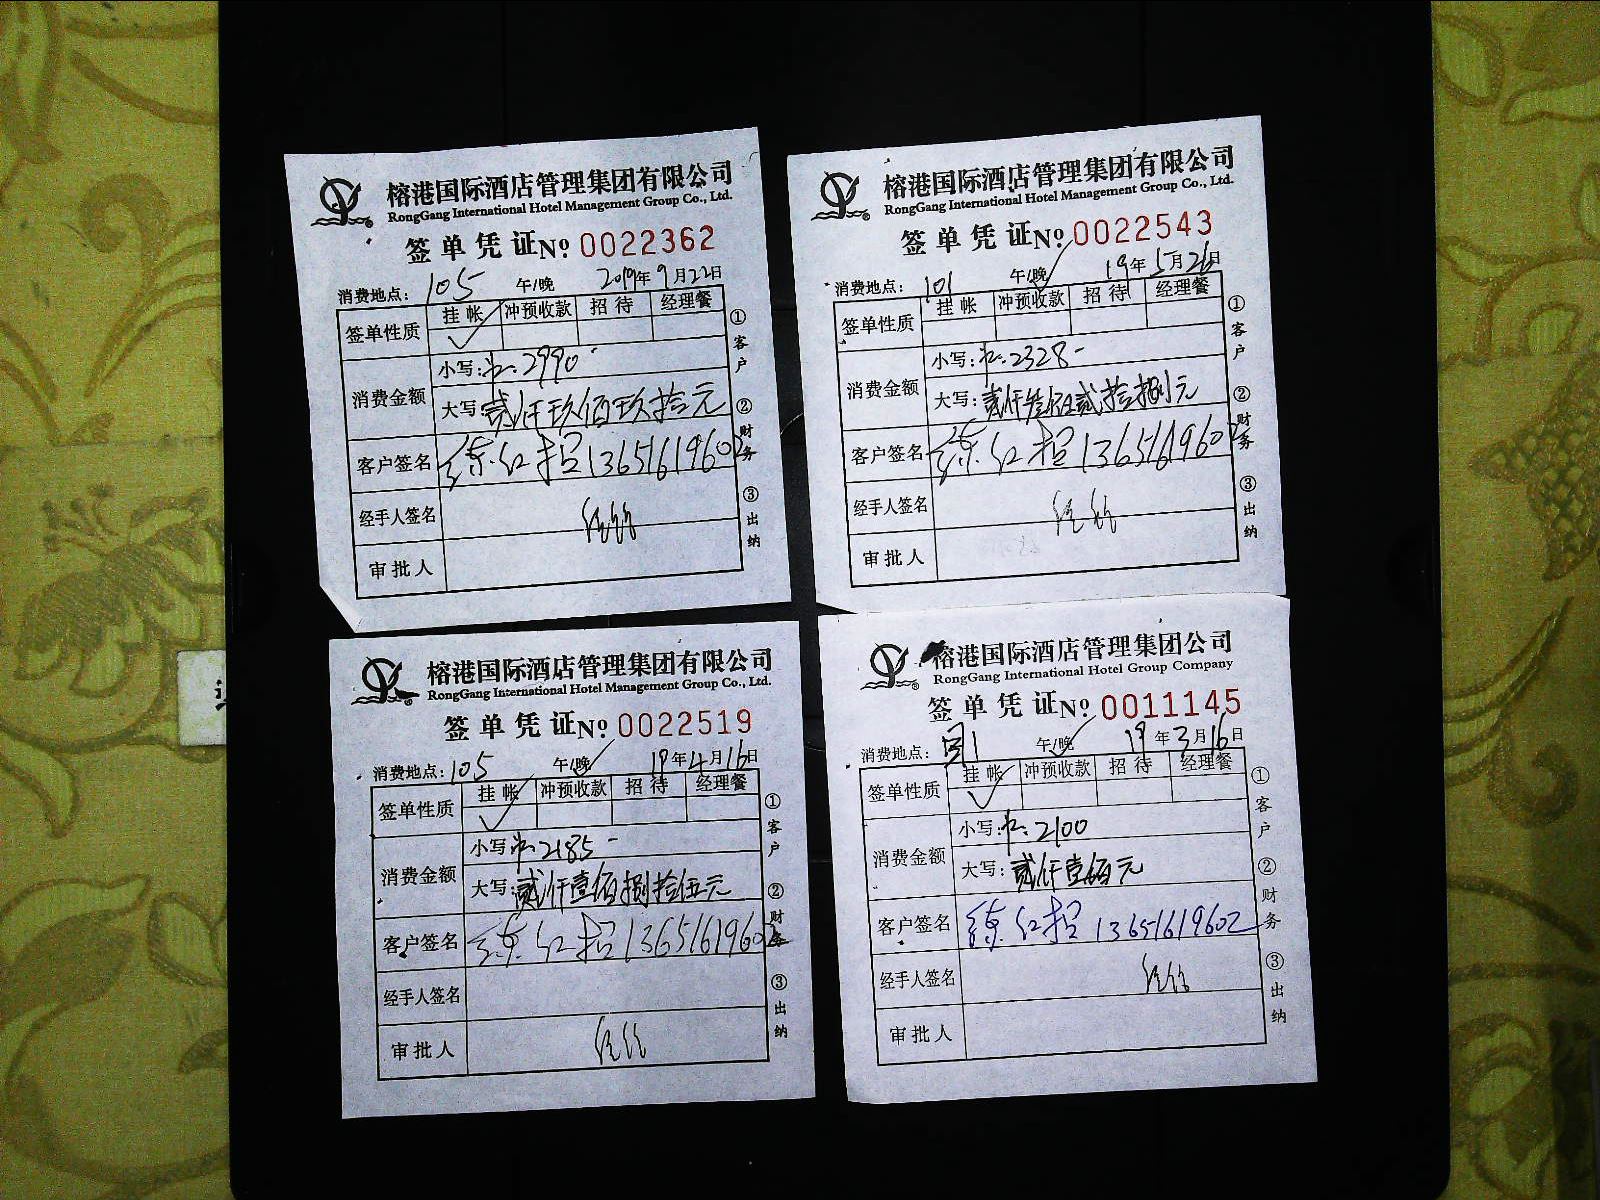 榕港国际酒店管理集团有限公司
RongGang International Hotel Management Group Co., Ltd.
签单凭证 No 0022362
消费地点: 105 午/晚 2019年9月22日
签单性质 挂帐 冲预收款 招待 经理餐
消费金额
小写: 2990
大写: 贰仟玖佰玖拾元
客户签名 练红招 13651619602
经手人签名
审批人
①客户 ②财务 ③出纳
榕港国际酒店管理集团有限公司
RongGang International Hotel Management Group Co., Ltd.
签单凭证 No 0022543
消费地点: 101 午/晚 19年5月26日
签单性质 挂帐 冲预收款 招待 经理餐
消费金额
小写: 2328-
大写: 贰仟叁佰贰拾捌元
客户签名 练红招 13651619602
经手人签名
审批人
①客户 ②财务 ③出纳
榕港国际酒店管理集团有限公司
RongGang International Hotel Management Group Co., Ltd.
签单凭证 No 0022519
消费地点: 105 午/晚 19年4月16日
签单性质 挂帐 冲预收款 招待 经理餐
消费金额
小写: 2185-
大写: 贰仟壹佰捌拾伍元
客户签名 练红招 13651619602
经手人签名
审批人
①客户 ②财务 ③出纳
榕港国际酒店管理集团公司
RongGang International Hotel Group Company
签单凭证 No 0011145
消费地点: 午/晚 19年3月16日
签单性质 挂帐 冲预收款 招待 经理餐
消费金额
小写: 2100
大写: 贰仟壹佰元
客户签名 练红招 13651619602
经手人签名
审批人
①客户 ②财务 ③出纳